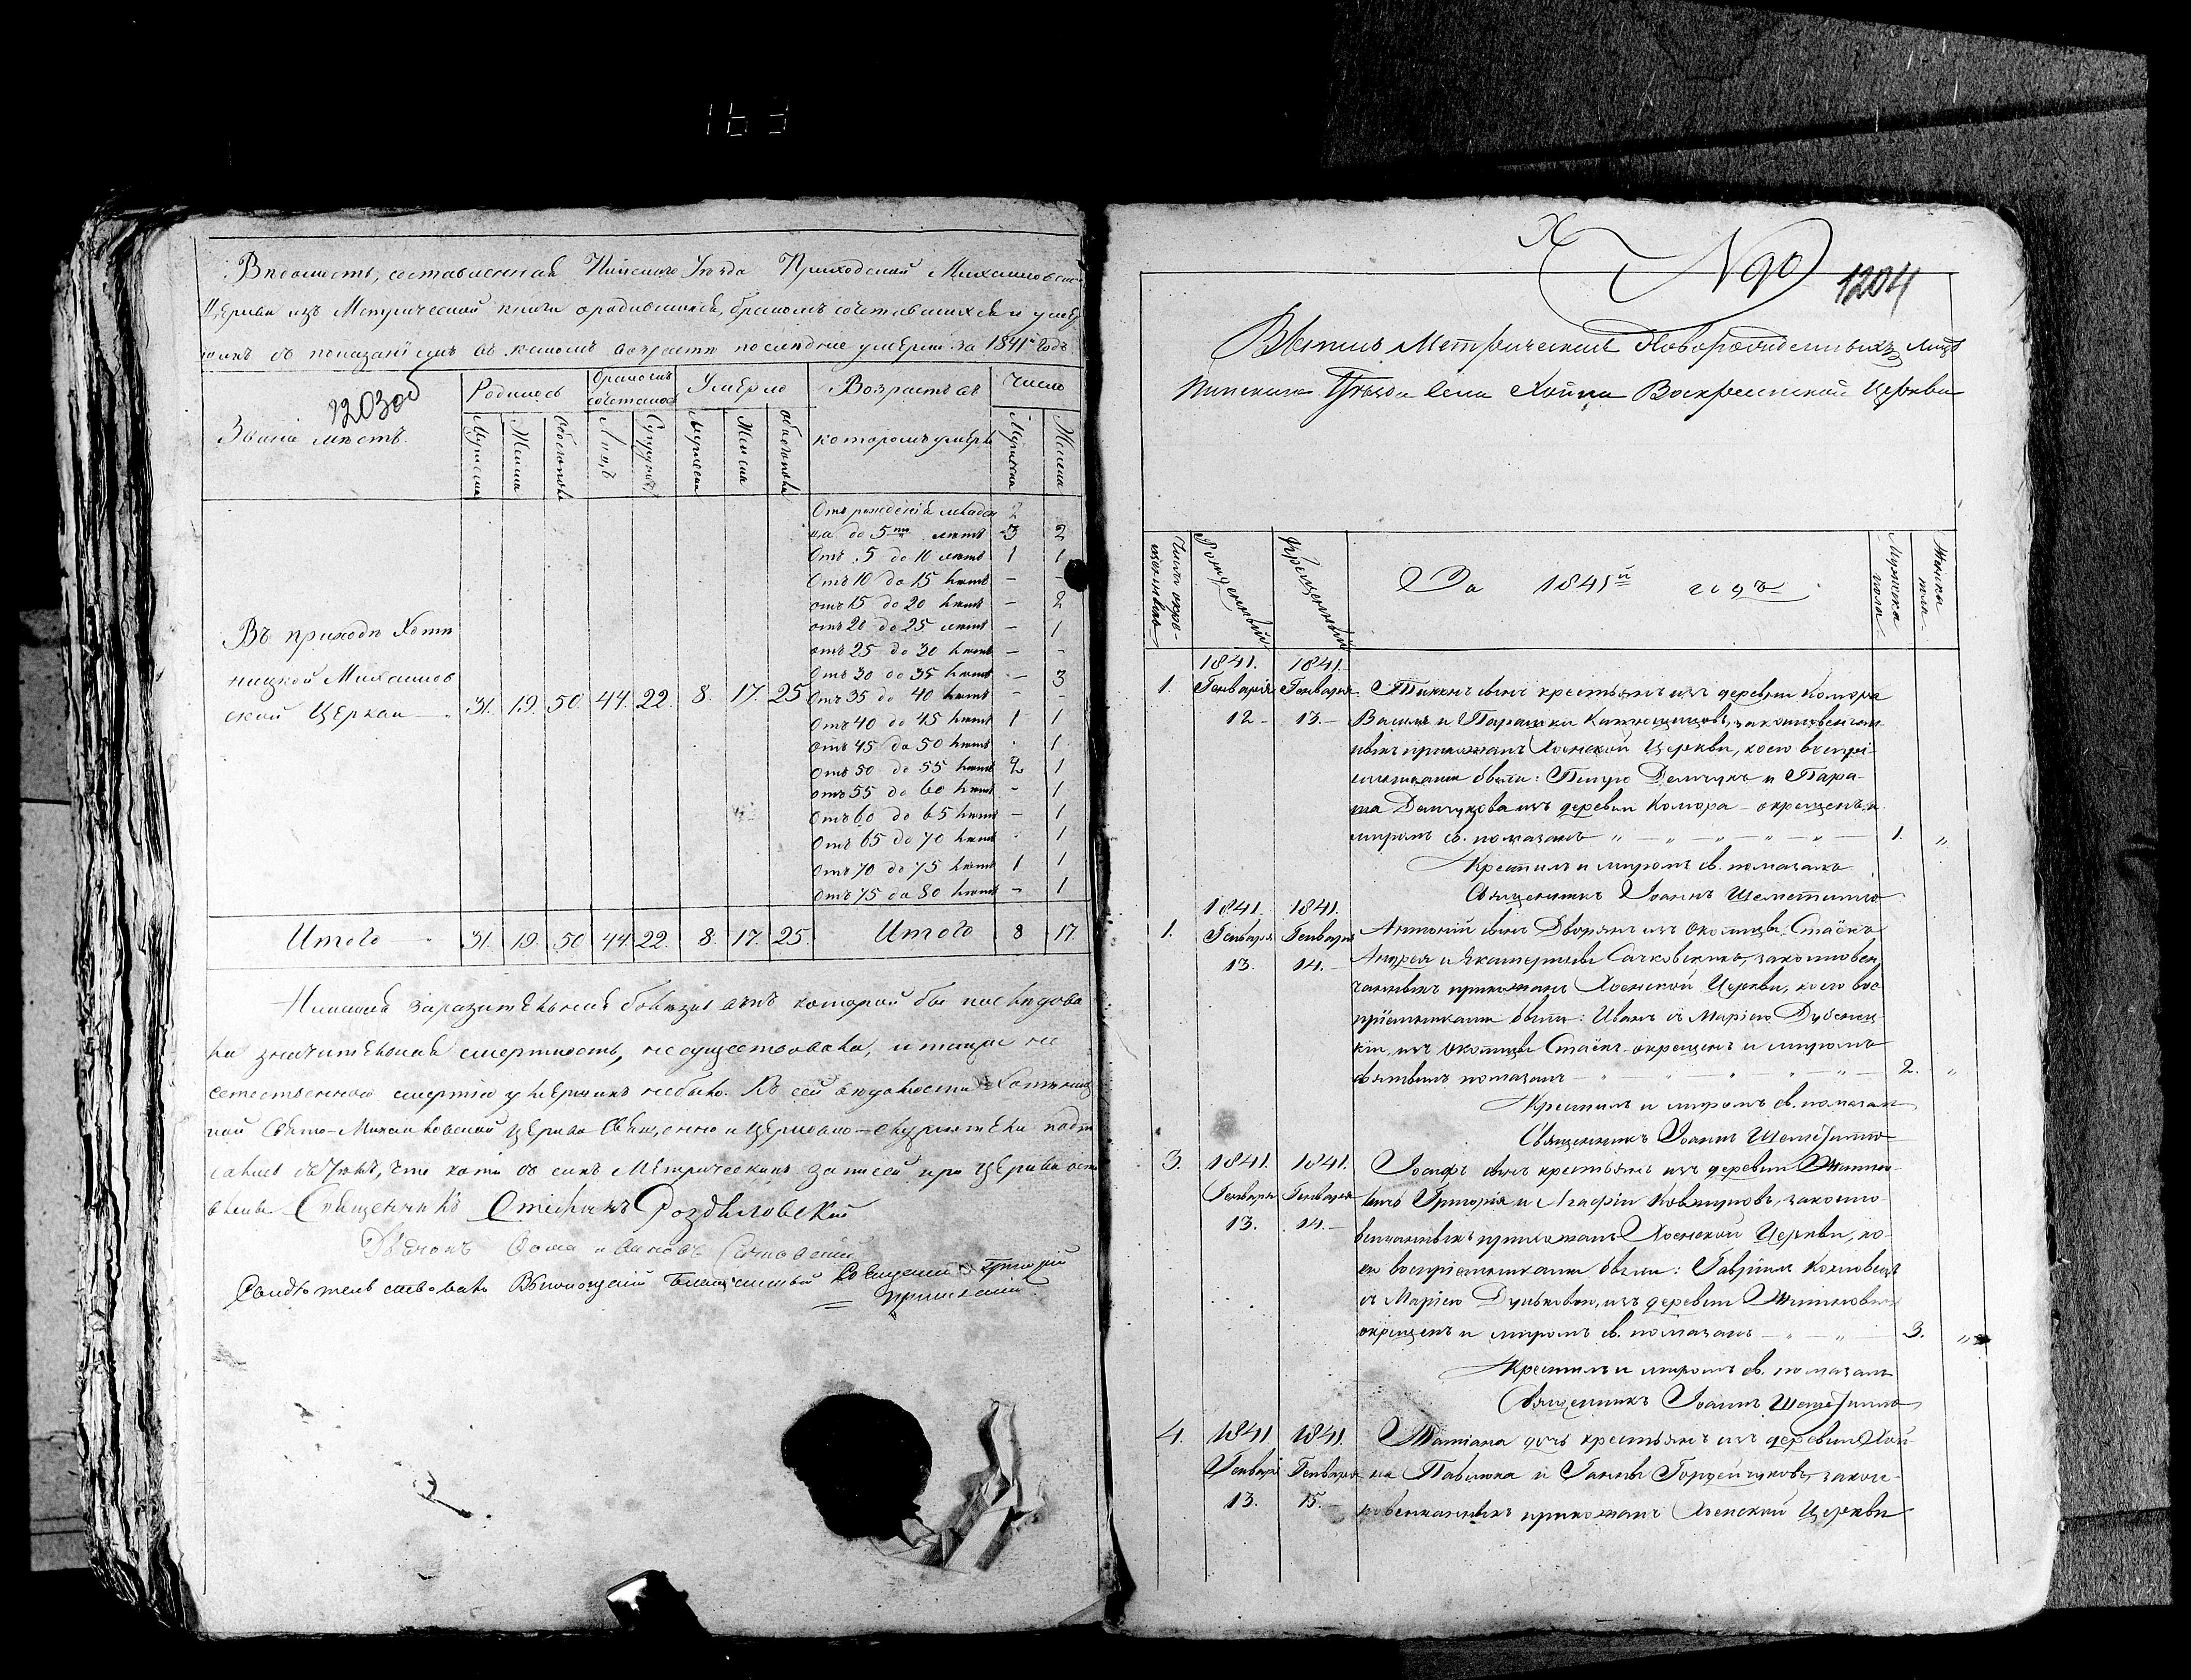 163
Ведомость, составленная Пинского Уезда Приходской Михайловской
Церкви изъ Метрической книги о родившихся, бракомъ сочетавшихся и умер
шихъ съ показаніемъ въ какомъ возрасте последніе умерли за 1841й годъ
1203 об
Званіе местъ.
Родилось
Бракомъ сочеталось
Умерло
Возрастъ въ которомъ умерли
Число
Мужеска
Женска
Обоего пола
Лицъ
Супружествъ
Мужеска
Женска
обоего пола
Мужеска
Женска
Отъ рожденія младен 2
ца до 5ти летъ 3 2
Отъ 5 до 10 летъ 1 1
Отъ 10 до 15 летъ - -
отъ 15 до 20 летъ - 2
отъ 20 до 25 летъ - 1
отъ 25 до 30 летъ - -
Отъ 30 до 35 летъ - 3
Отъ 35 до 40 летъ - -
Отъ 40 до 45 летъ 1 1
Отъ 45 до 50 летъ - 1
Отъ 50 до 55 летъ 2 1
отъ 55 до 60 летъ - 1
Отъ 60 до 65 летъ - 1
Отъ 65 до 70 летъ - 1
Отъ 70 до 75 летъ 1 1
Отъ 75 до 80 летъ - 1
Въ приходе Хоты
ницкой Михайлов
ской Церкви 31. 19. 50. 44. 22. 8. 17. 25
Итого 31. 19. 50 44. 22. 8. 17. 25. Итого 8 17.
Никакой заразительной болезни отъ которой бы последова
ла значительная смертность, не существовала, и также не
естественною смертію умершихъ не было. Къ сей ведомости Хотыниц
кой Свято-Михайловской Церкви Священно и Церковно-служители подпи
сались въ томъ, что копія съ сихъ Метрическихъ записей при Церкви оста
влена Священникъ Стефанъ Роздяловскій
Дьячокъ Фома
Свидетельствовалъ Благочинный Священникъ Григорій
N 90
1204
Выпись Метрическая Новорожденныхъ лицъ
Пинскаго Уезда Села Хойна Воскресенской Церкви
Число окре-
щенныхъ
Рожденный
Крещенный
За 1841й годъ
Мужеска пола.
Женска пола.
1. 1841. Генваря 12 - 1841. Генваря 13. -
Тихонъ сынъ крестьянъ изъ деревни Комора
Василя и Парашки , законновенчан-
ныхъ прихожанъ Хоенской Церкви, коего воспрі-
емниками были: Петро Демчукъ и Пара-
ша Демчукова изъ деревни Комора - окрещенъ и
миромъ св. помазанъ 1. „
Крестилъ и миромъ св. помазалъ
Священникъ Іоаннъ Шеметилло
1. 1841. Генваря 13. 1841. Генваря 14. -
Антоній сынъ Дворянъ изъ Околицы Стаёкъ
Андрея и Екатерины Сачковскихъ, законновен-
чанныхъ прихожанъ Хоенской Церкви, коего вос-
пріемниками были: Иванъ съ Маріею Дубениц-
кіи, изъ околицы Стаёкъ - окрещенъ и миромъ
святымъ помазанъ 2. „
Крестилъ и миромъ св. помазалъ
Священникъ Іоаннъ Шеметилло
3. 1841. Генваря 13. 1841. Генваря 14. -
Іосифъ сынъ крестьянъ изъ деревни
Григорія и Агафіи , законно
венчанныхъ прихожанъ Хоенской Церкви, ко-
ея воспріемниками были: Гавріилъ
съ Маріею , изъ деревни
окрещенъ и миромъ св. помазанъ 3. „
Крестилъ и миромъ св. помазалъ
Священникъ Іоаннъ Шеметилло
4. 1841. Генваря 13. 1841. Генваря 15. -
Татіана дочь крестьянъ изъ деревни Хой-
на Павлюка и Ганны Гордейчуковъ, закон-
новенчанныхъ прихожанъ Хоенской Церкви